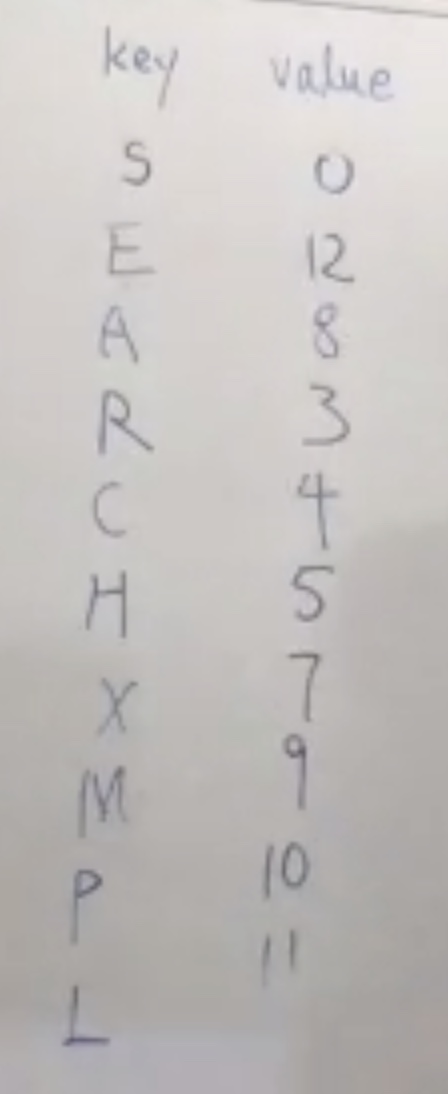 key value
S 0
E 12
A 8
R 3
C 4
H 5
X 7
M 9
P 10
L 11